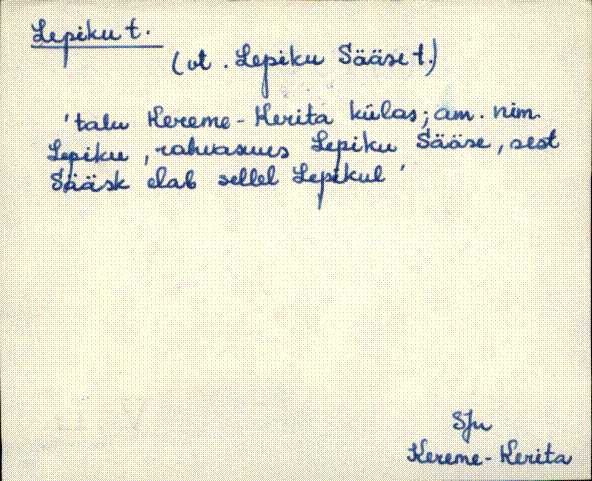 Lepiku t.
(vt. Lepiku Sääse t.)
'talu Kereme-Kerita külas; am. nim.
Lepiku, rahvasuus Lepiku Sääse, sest
Sääsk elab sellel Lepikul'
SJn
Kereme-Kerita